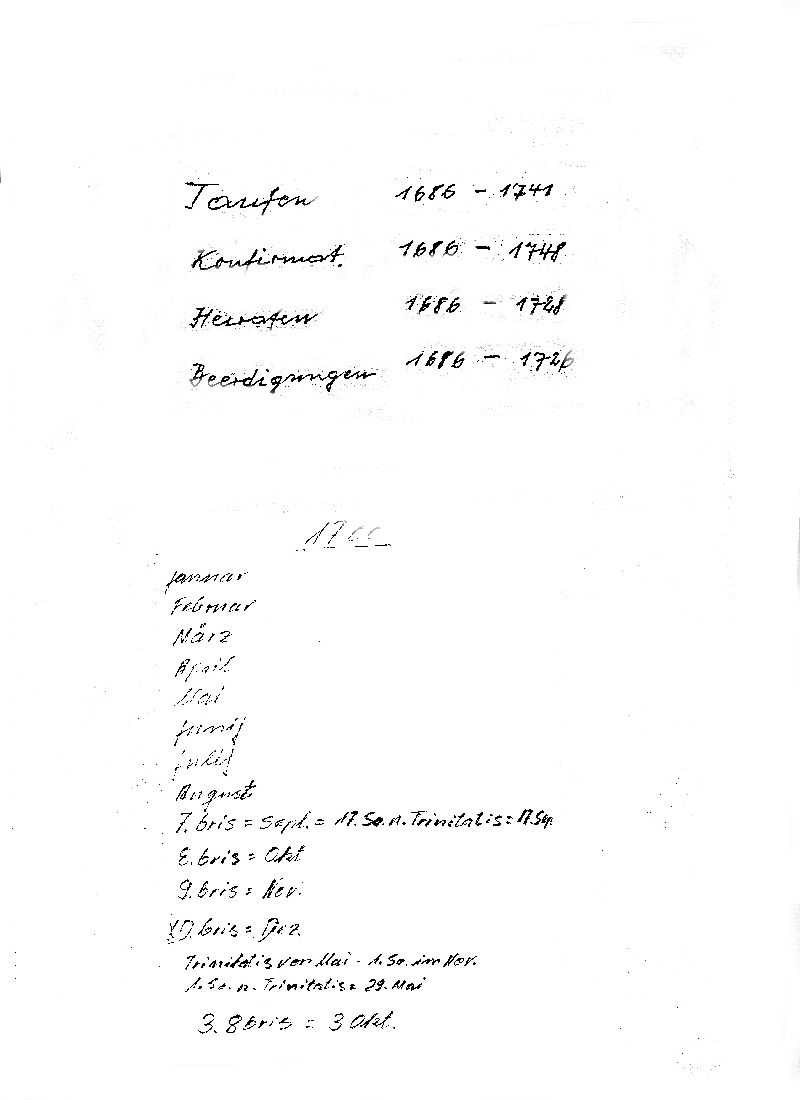 Taufen 1686 - 1741
Konfirmat. 1686 - 1748
Heiraten 1686 - 1728
Beerdigungen 1686 - 1726
Januar
Februar
März
April
Mai
Junij
Julij
August
7.bris = Sept. = 17. So. n. Trinitatis = 17. Sep.
8.bris = Okt
9.bris = Nov.
X0.bris = Dez.
Trinitatis von Mai - 1. So. im Nov.
1. So. n. Trinitatis = 29. Mai
3. 8bris = 3 Okt.